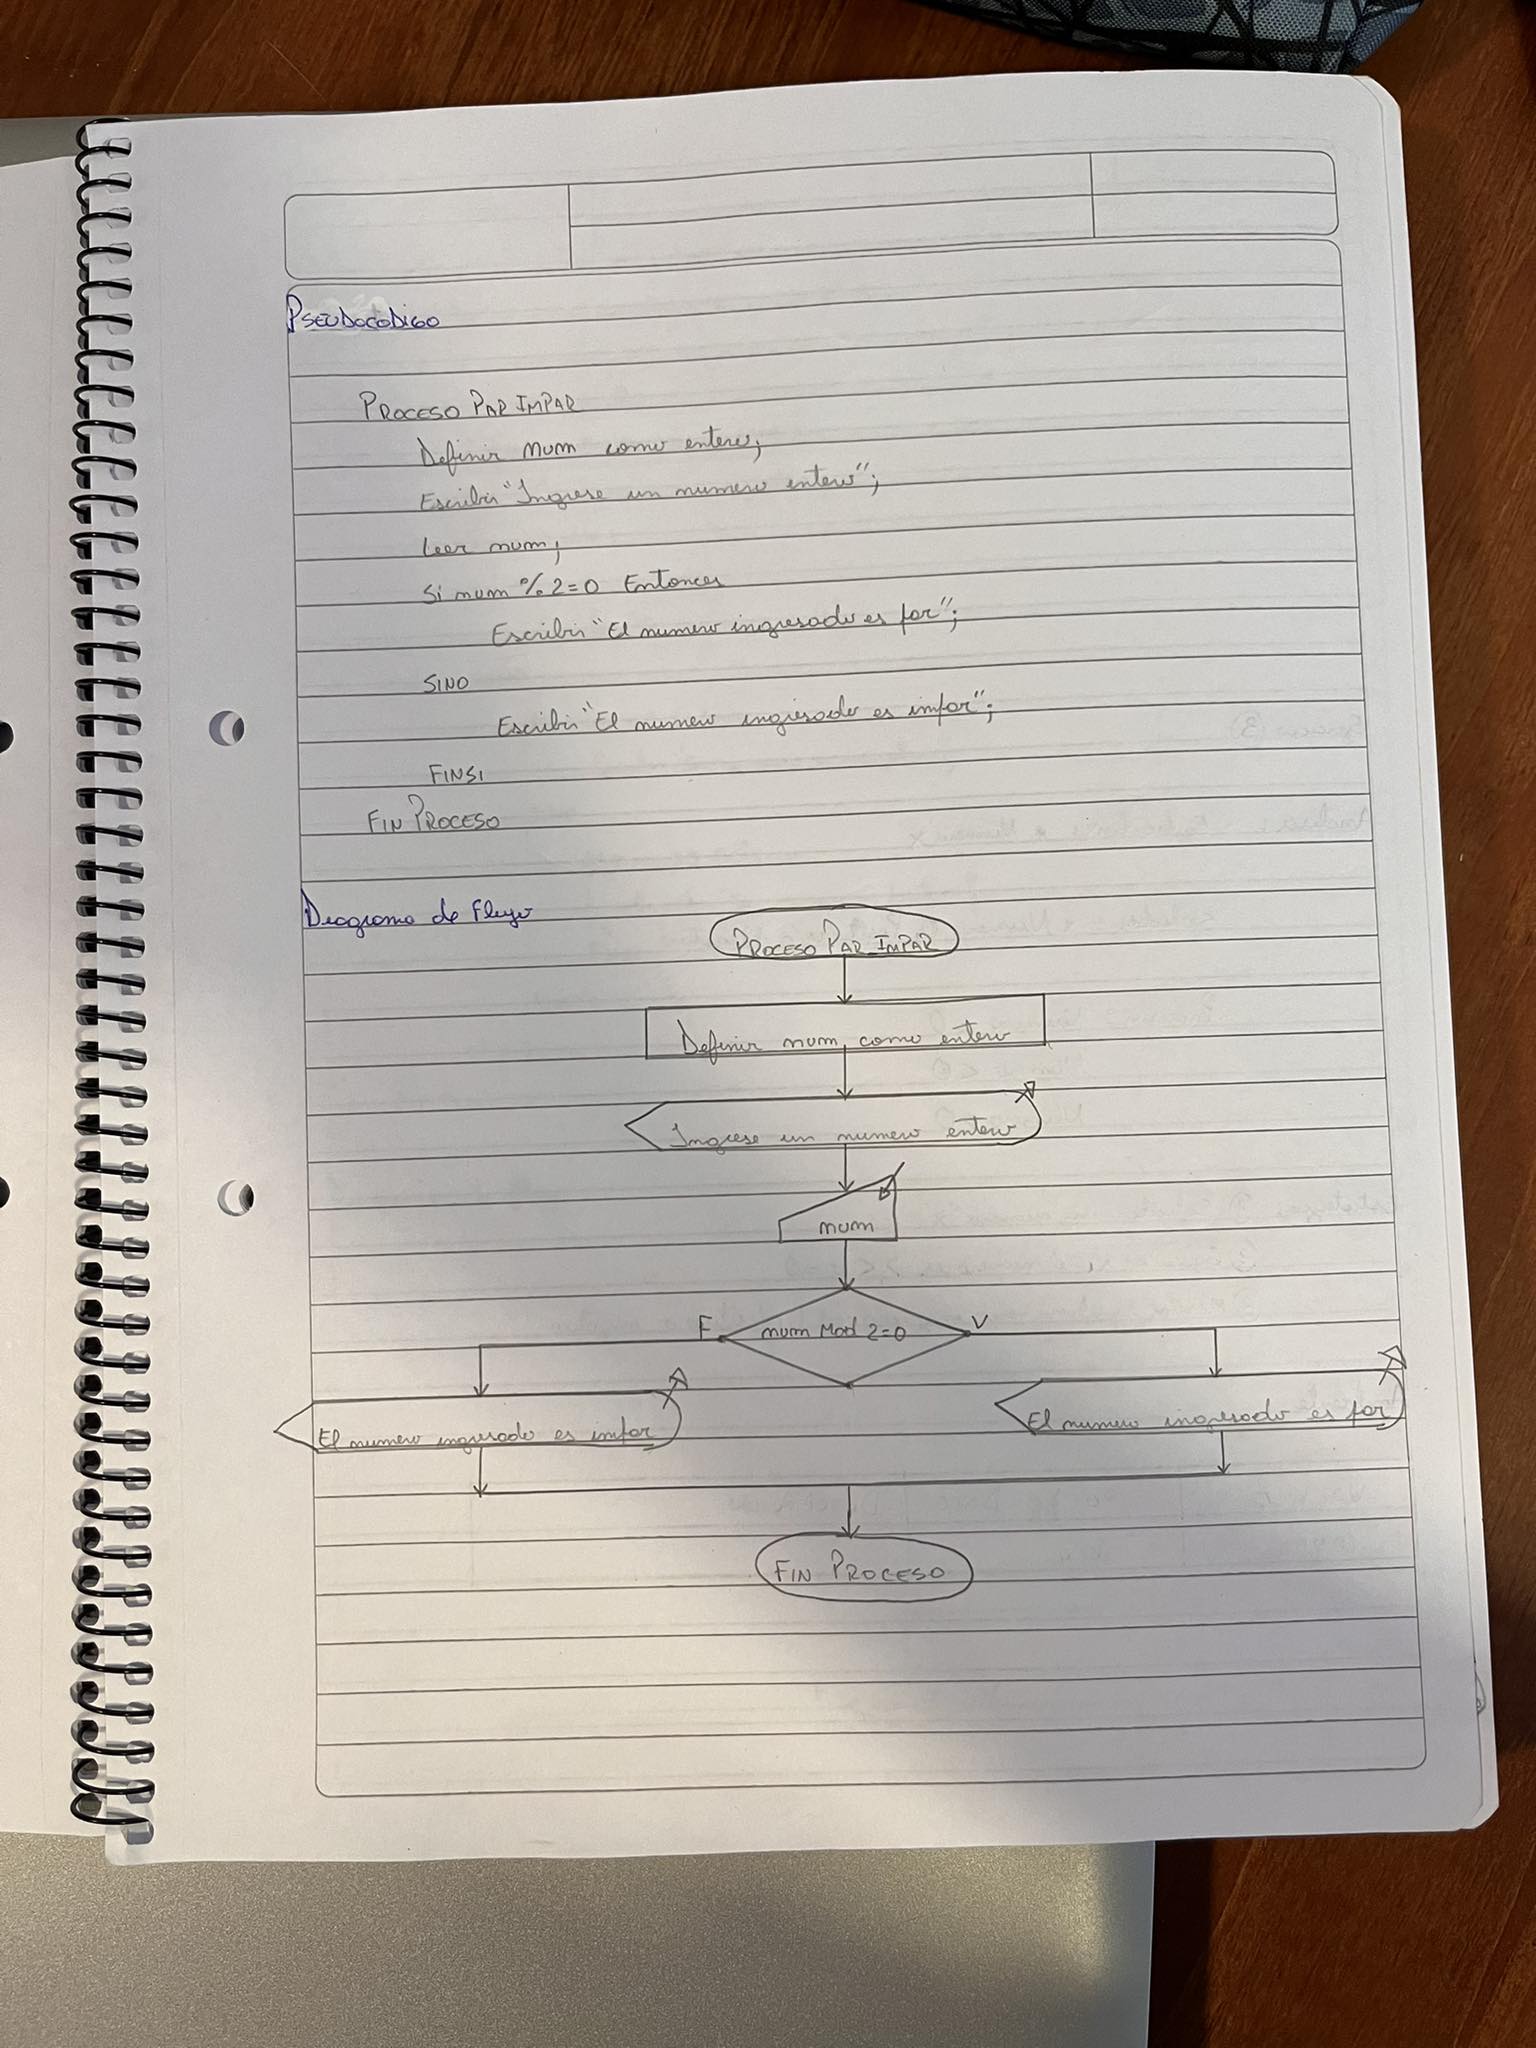 PSEUDOCODIGO
PROCESO PAR IMPAR
Definir num como entero;
Escribir "Ingrese un numero entero";
Leer num;
Si num % 2=0 Entonces
Escribir "El numero ingresado es par";
SINO
Escribir "El numero ingresado es impar";
FINSI
FIN PROCESO
Diagrama de Flujo
PROCESO PAR_IMPAR
Definir num como entero
Ingrese un numero entero
num
F
num Mod 2=0
V
El numero ingresado es impar
El numero ingresado es par
FIN PROCESO